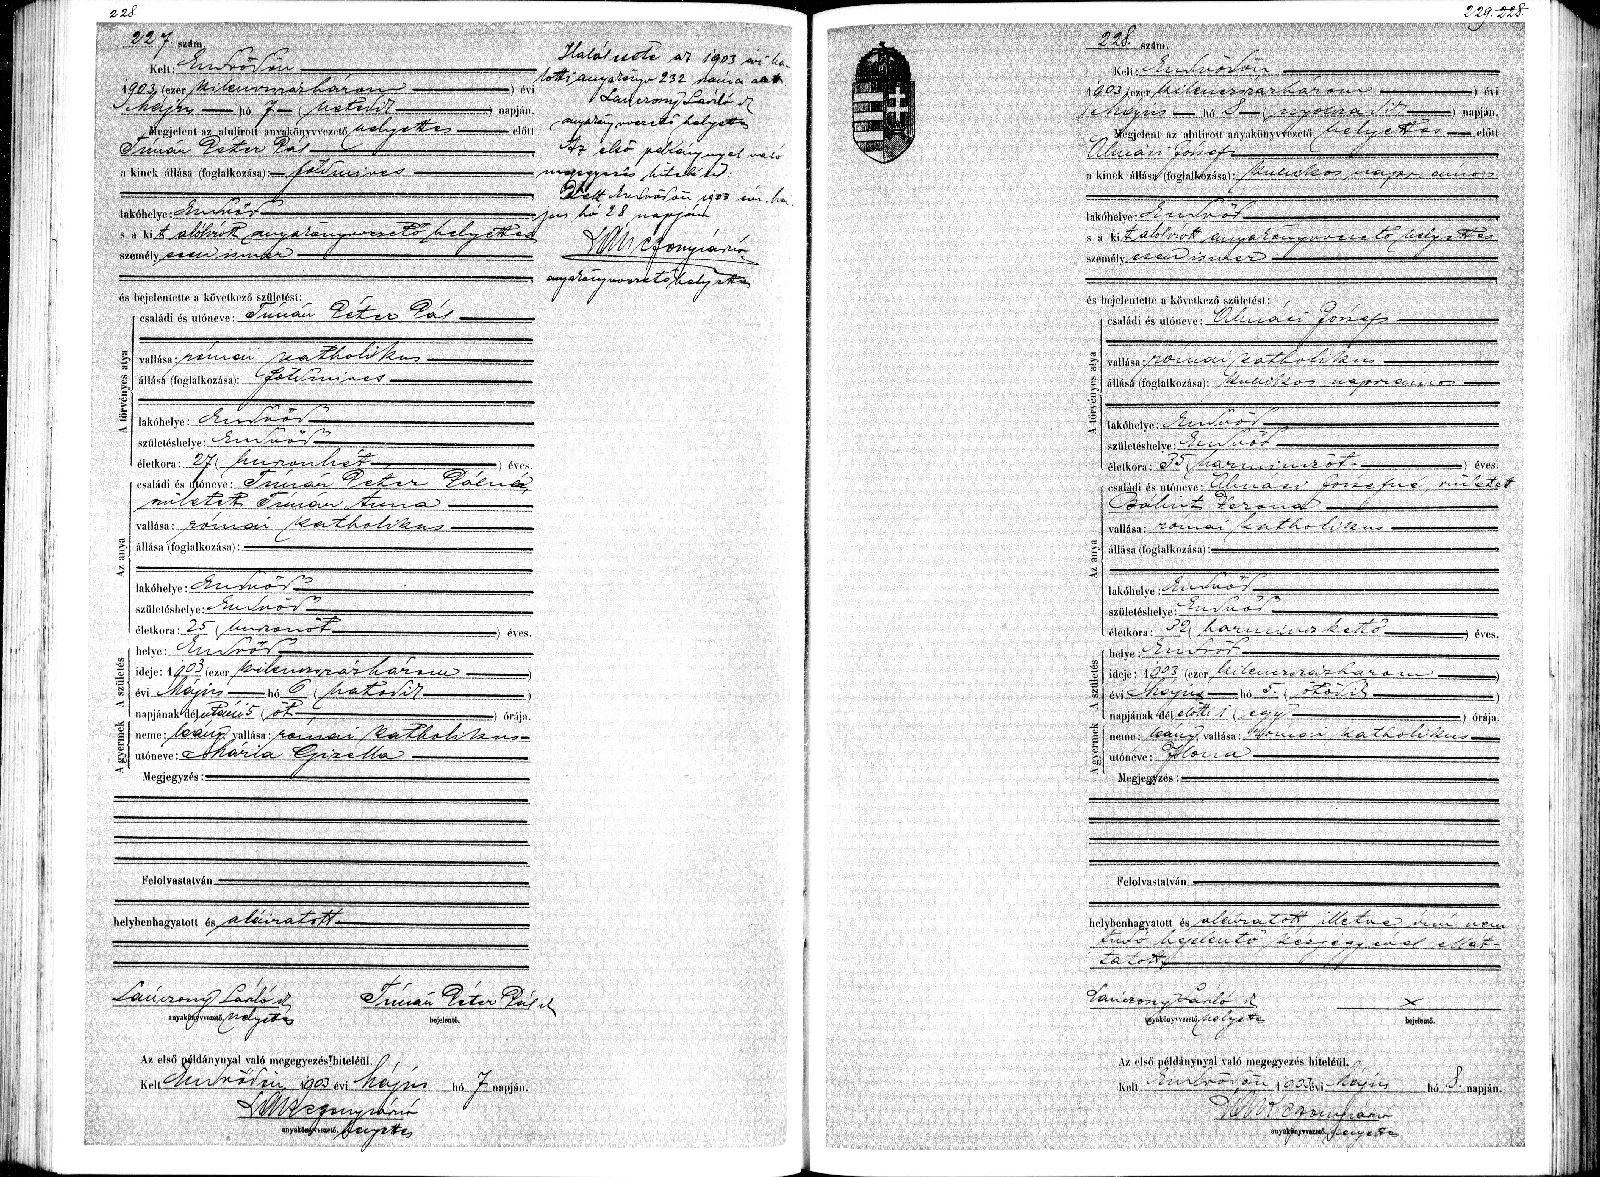 228
227 szám.
Kelt: Endrődön
1903 (ezer kilencszázhárom) évi
Május hó 7 (hetedik) napján.
Megjelent az alulirott anyakönyvvezető helyettes előtt
Timár Péter Pál
a kinek állása (foglalkozása): földmives
lakóhelye: Endrőd
s a kit alólirott anyakönyvvezető helyettes
személyesen ismer
és bejelentette a következő születést:
A törvényes atya
családi és utóneve: Timár Péter Pál
vallása: római katholikus
állása (foglalkozása): földmives
lakóhelye: Endrőd
születéshelye: Endrőd
életkora: 27 (huszonhét) éves.
Az anya
családi és utóneve: Timár Péter Pálné,
született Timár Anna
vallása: római katholikus
állása (foglalkozása):
lakóhelye: Endrőd
születéshelye: Endrőd
életkora: 25 (huszonöt) éves.
A születés
helye: Endrőd
ideje: 1903 (ezer kilencszázhárom)
évi Május hó 6 (hatodik)
napjának dél utáni 5 (öt) órája.
A gyermek
neme: leány, vallása: római katholikus
utóneve: Mária Gizella
Megjegyzés:
Felolvastatván
helybenhagyatott és aláiratott
Lánczony László Timár Péter Pál
anyakönyvvezető helyettes bejelentő.
Az első példánynyal való megegyezés hiteléül.
Kelt Endrődön, 1903 évi Május hó 7 napján.
anyakönyvvezető helyettes
Halálesete az 1903 évi ha-
lotti anyakönyv 232 száma alatt.
Lánczony László
anyakönyvvezető helyettes
Az első példánynyal való
megegyezés hiteléül.
Kelt Endrődön 1903 évi
hó 28 napján
anyakönyvvezető helyettes
229. 228.
228 szám.
Kelt: Endrődön
1903 (ezer kilencszázhárom) évi
Május hó 8 (nyolcadik) napján.
Megjelent az alulirott anyakönyvvezető helyettes előtt
Almási József
a kinek állása (foglalkozása): kubikos napszámos
lakóhelye: Endrőd
s a kit alólirott anyakönyvvezető helyettes
személyesen ismer
és bejelentette a következő születést:
A törvényes atya
családi és utóneve: Almási József
vallása: római katholikus
állása (foglalkozása): kubikos napszámos
lakóhelye: Endrőd
születéshelye: Endrőd
életkora: 35 (harmincöt) éves.
Az anya
családi és utóneve: Almási Józsefné, született
Bálint Verona
vallása: római katholikus
állása (foglalkozása):
lakóhelye: Endrőd
születéshelye: Endrőd
életkora: 32 (harminckettő) éves.
A születés
helye: Endrőd
ideje: 1903 (ezer kilencszázhárom)
évi Május hó 5 (ötödik)
napjának dél előtti 1 (egy) órája.
A gyermek
neme: leány, vallása: római katholikus
utóneve: Ilona
Megjegyzés:
Felolvastatván
helybenhagyatott és aláiratott, illetve irni nem
tudó bejelentő kézjegyével ellát-
tatott
Lánczony László x
anyakönyvvezető helyettes bejelentő.
Az első példánynyal való megegyezés hiteléül.
Kelt Endrődön 1903 évi Május hó 8. napján.
anyakönyvvezető helyettes